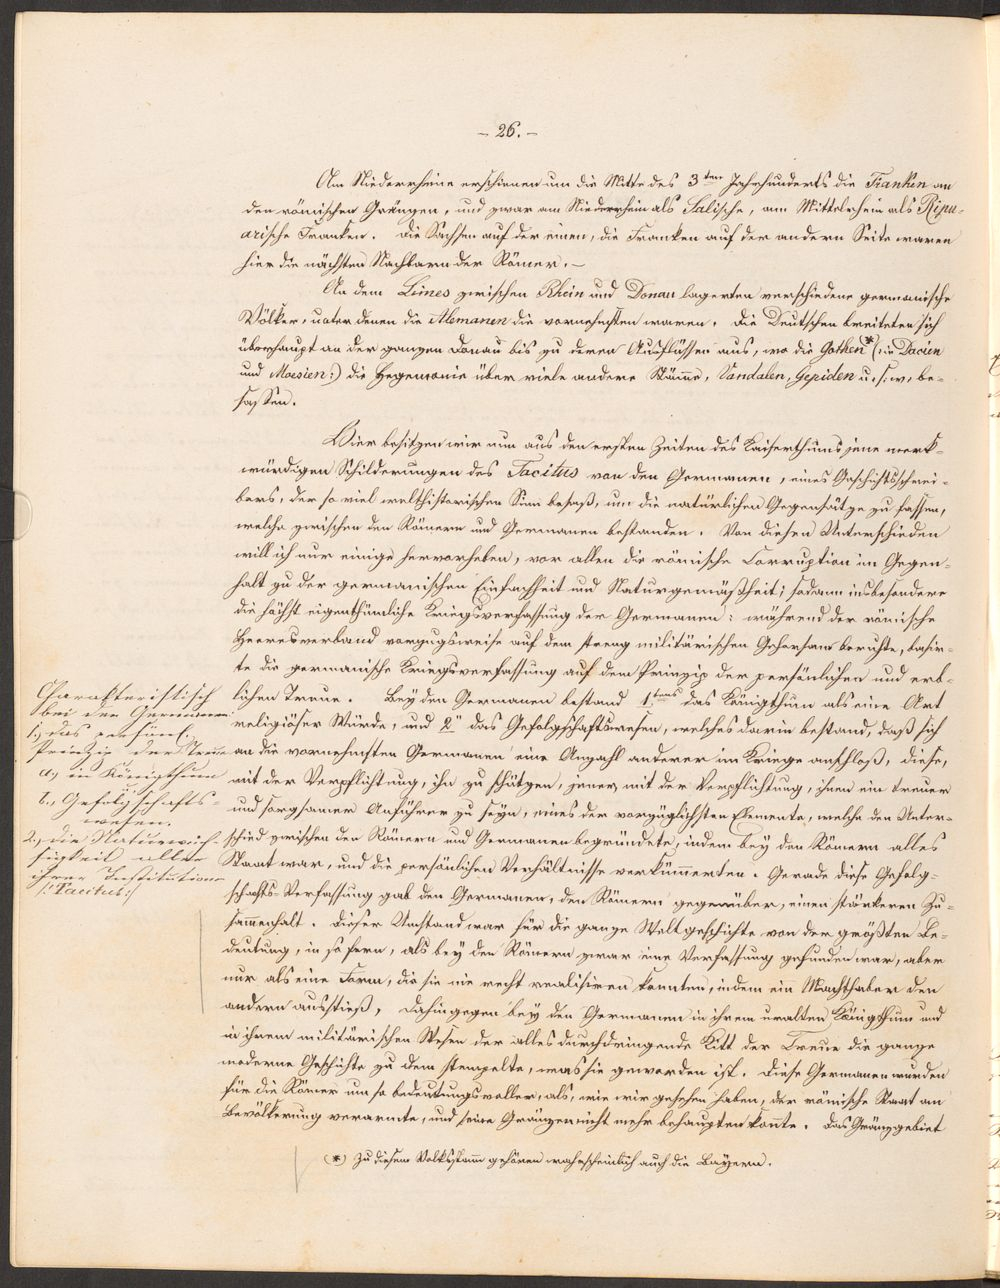 – 26. –
Am Niederrheine erschienen um die Mitte des 3ten Jahrhunderts die Franken an
den römischen Gränzen, und zwar am Niederrhein als Salische, am Mittelrhein als Ripu-
arische Franken. Die Sachsen auf der einen, die Franken auf der andern Seite waren
hier die nächsten Nachbarn der Römer. –
An dem Limes zwischen Rhein und Donau lagerten verschiedene germanische
Völker, unter denen die Alemanen die vornehmsten waren. Die Deutschen breiteten sich
überhaupt an der ganzen Donau bis zu deren Ausflüssen aus, wo die Gothen (*) (: in Dacien
und Moesien :) die Hegemonie über viele andere Stämme, Vandalen, Gepiden u. s. w. be-
saßen.
Hier besitzen wir nun aus den ersten Zeiten des Kaiserthums jene merk-
würdigen Schilderungen des Tacitus von den Germanen, eines Geschichtsschrei-
bers, der so viel welthistorischen Sinn besaß, um die natürlichen Gegensätze zu fassen,
welche zwischen den Römern und Germanen bestanden. Von diesen Unterschieden
will ich nur einige hervorheben, vor allen die römische Corruption im Gegen-
halt zu der germanischen Einfachheit und Naturgemäßheit; sodann insbesondere
die höchst eigenthümliche Kriegsverfassung der Germanen: während der römische
Heeresverband vorzugsweise auf dem streng militärischen Gehorsam beruhte, basir-
te die germanische Kriegsverfassung auf dem Prinzip der persönlichen und erb-
lichen Treue. Bey den Germanen bestand 1.tens das Königthum als eine Art
religiöser Würde, und 2" das Gefolgschaftswesen, welches darin bestand, daß sich
an die vornehmsten Germanen eine Anzahl anderer im Kriege anschloß, diese,
mit der Verpflichtung, ihn zu schützen, jener, mit der Verpflichtung, ihnen ein treuer
und sorgsamer Anführer zu seyn, eines der vorzüglichsten Elemente, welche den Unter-
schied zwischen den Römern und Germanen begründete, indem bey den Römern alles
Staat war, und die persönlichen Verhältnisse verkümmerten. Gerade diese Gefolg-
schafts-Verfassung gab den Germanen, den Römern gegenüber, einen stärkeren Zu-
sammenhalt. Dieser Umstand war für die ganze Weltgeschichte von der größten Be-
deutung, in so fern, als bey den Römern zwar eine Verfassung gefunden war, aber
nur als eine Form, die sie nie recht realisiren konnten, indem ein Machthaber den
andern ausstieß, dahingegen bey den Germanen in ihrem uralten Königthum und
in ihrem militärischen Wesen der alles durchdringende Kitt der Treue die ganze
moderne Geschichte zu dem stempelte, was sie geworden ist. Diese Germanen wurden
für die Römer um so bedeutungsvoller, als, wie wir gesehen haben, der römische Staat an
Bevölkerung verarmte, und seine Gränzen nicht mehr behaupten konnte. Das Gränzgebiet
(*) Zu diesem Volksstamm gehören wahrscheinlich auch die Bayern.
Charakteristisch
bei den Germanen:
1., das persönl.
Prinzip der Treue
a., im Königthum
b., Gefolgschafts-
wesen.
2., die Naturwüch-
sigkeit aller
ihrer Institutionen
/: Tacitus :/